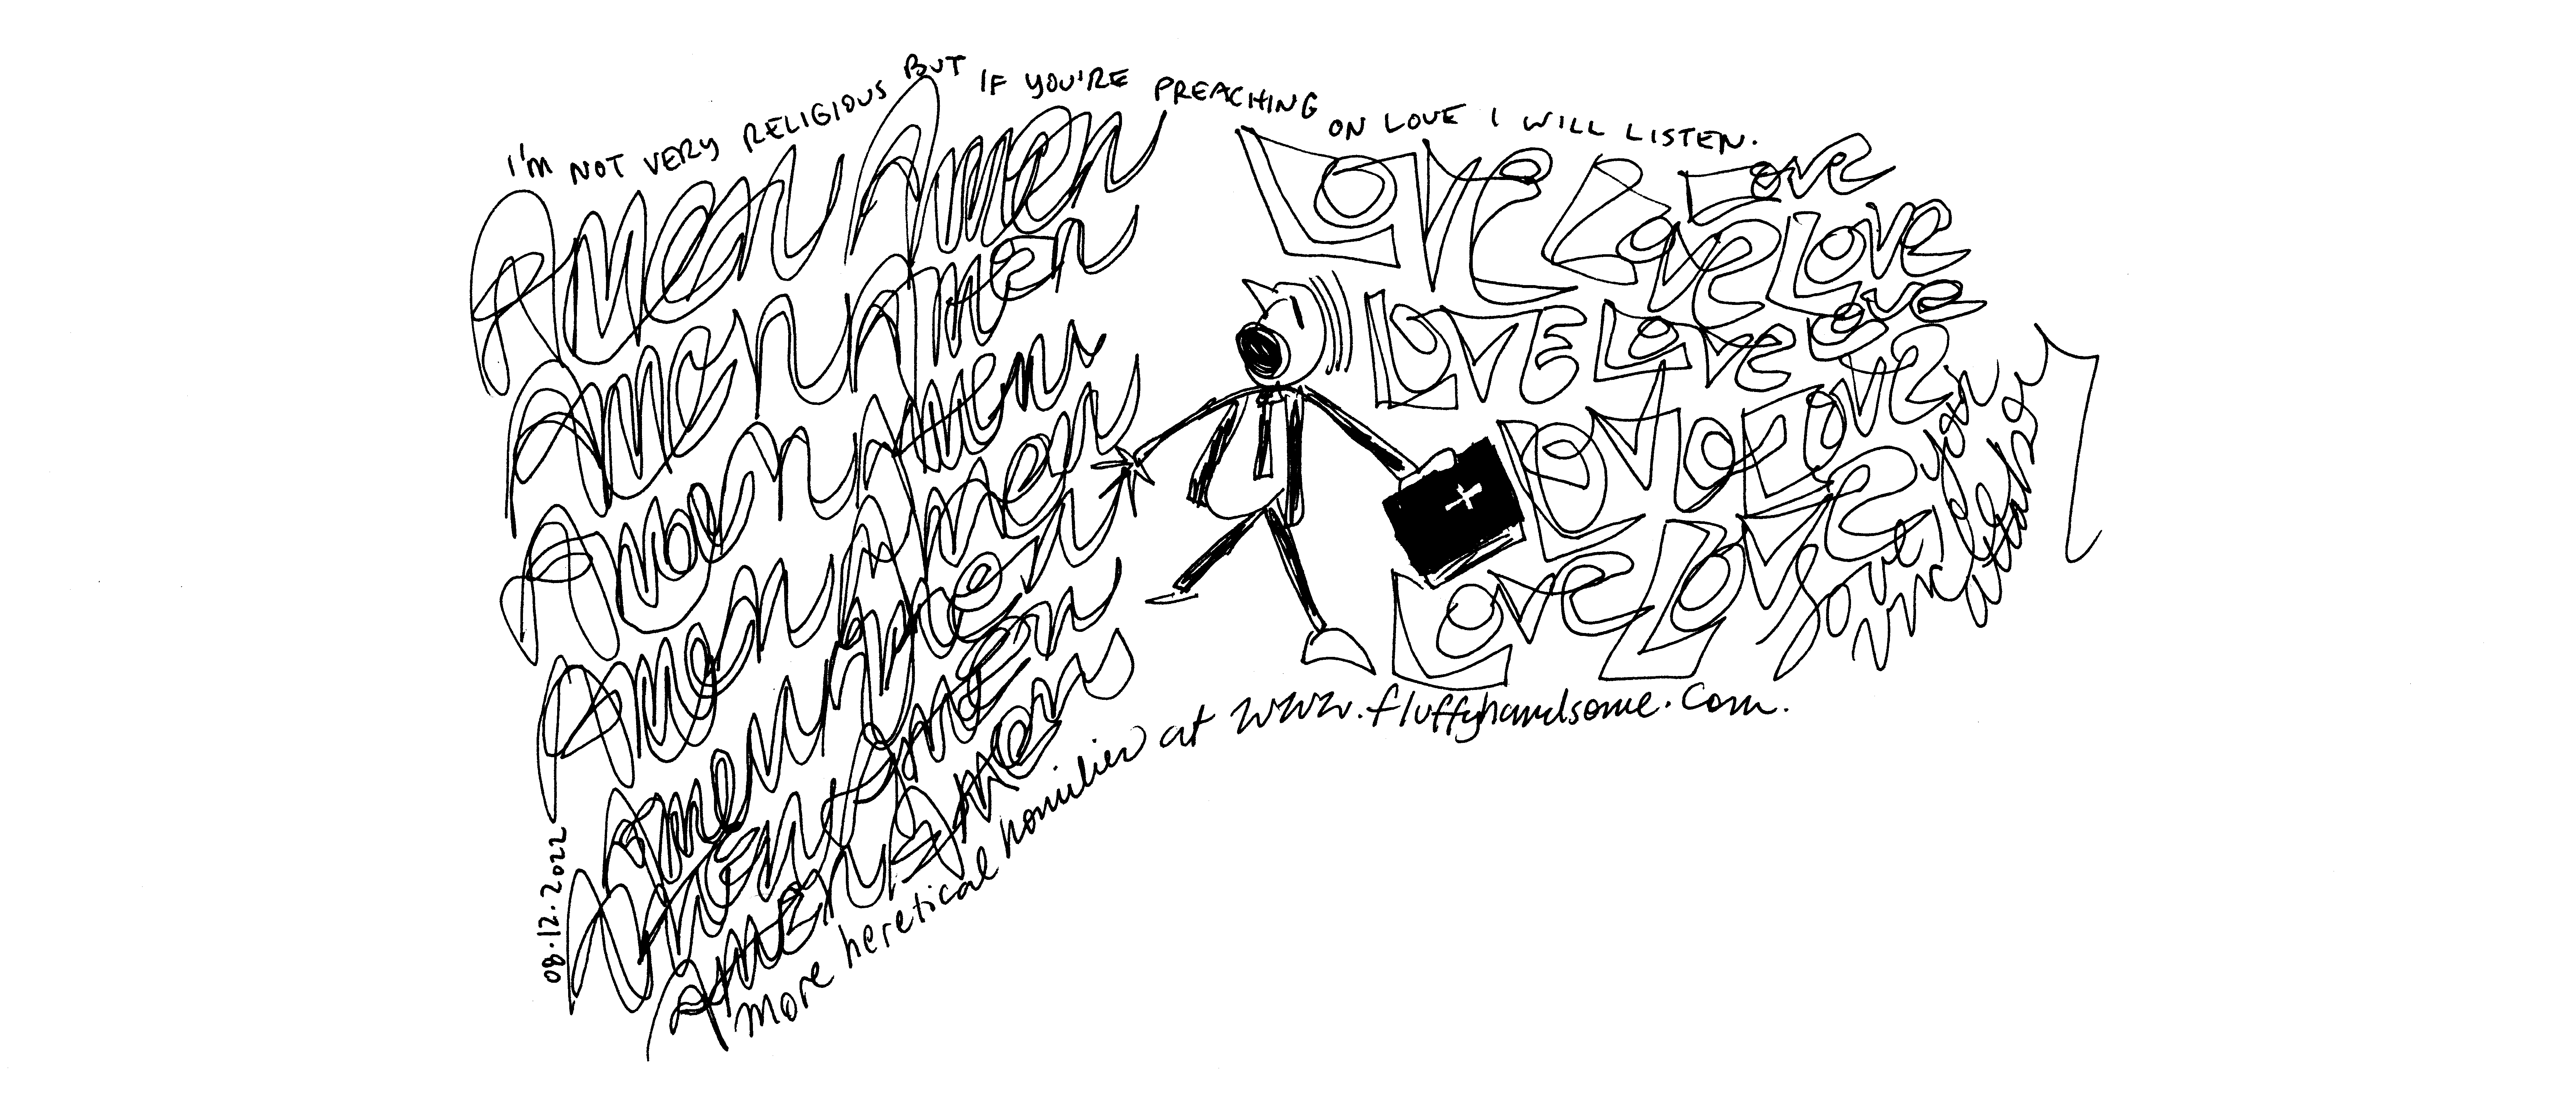 I'M NOT VERY RELIGIOUS BUT IF YOU'RE PREACHING ON LOVE I WILL LISTEN.
Amen Amen
Amen Amen
Amen Amen
Amen Amen
Amen Amen
Amen Amen
Amen Amen
LOVE LOVE LOVE
LOVE
LOVE LOVE LOVE
LOVE LOVE
LOVE LOVE
08.12.2022
more heretical homilies at www.fluffyhandsome.com.